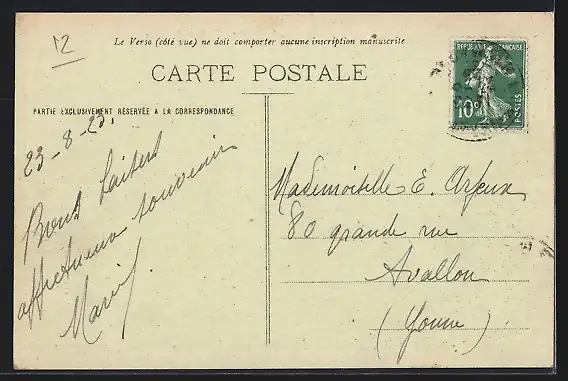 12
Le Verso (côté vue) ne doit comporter aucune inscription manuscrite
CARTE POSTALE
PARTIE EXCLUSIVEMENT RÉSERVÉE A LA CORRESPONDANCE
RÉPUBLIQUE FRANÇAISE
10c
POSTES
23-8-23.
Bons baisers
affectueux souvenir
Marcel
Mademoiselle E. Arfeux
80 grande rue
Avallon
(Yonne)